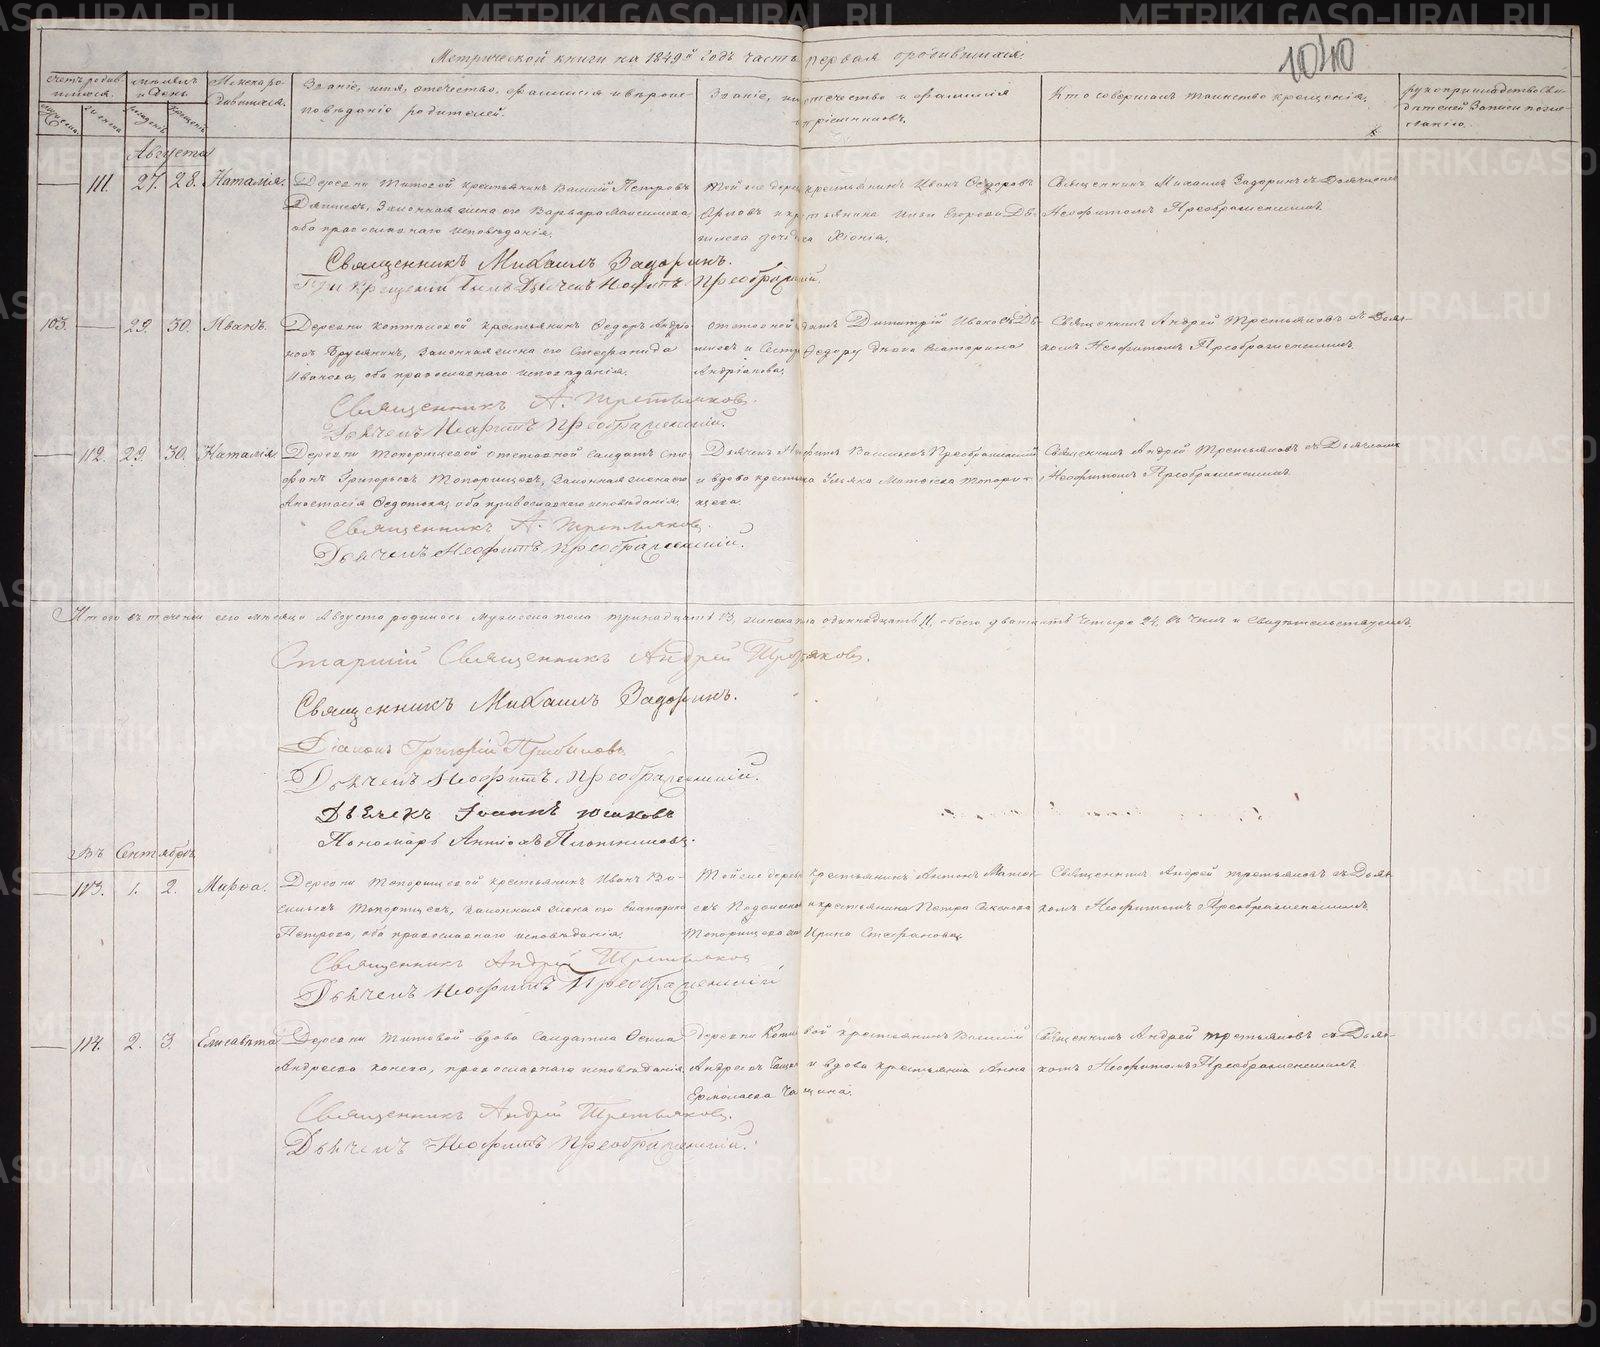 Метрической книги на 1849й годъ часть первая о родившихся
1040
Счетъ родив-
шихся.
Мѣсяцъ
и день.
Имена ро-
дившихся.
Званіе, имя, отечество, фамилія и вѣроис-
повѣданіе родителей.
Званіе, имя, отечество и фамилія
воспріемниковъ.
Кто совершалъ таинство крещенія.
рукоприкладство сви-
дѣтелей записи по же-
ланію.
Августа
111. 27. 28. Наталія.
Деревни Титовой крестьянинъ Василій Петровъ
законная жена его Варвара Максимова,
оба православнаго исповѣданія.
Той же деревни крестьянинъ Иванъ Ѳедоровъ
крестьянина Егорова
дочь Хіонія.
Священникъ Михаилъ Задоринъ съ Дьячкомъ
Неофитомъ Преображенскимъ.
Священникъ Михаилъ Задоринъ.
При крещеніи былъ Дьячекъ Неофитъ Преображенскій.
103. 29. 30. Иванъ.
Деревни крестьянинъ Ѳедоръ Андріа-
новъ законная жена его Стефанида
Иванова, оба православнаго исповѣданія.
отставной солдатъ Димитрій Ивановъ
и сестра Екатерина
Андріанова.
Священникъ Андрей Третьяковъ съ Дьяч-
комъ Неофитомъ Преображенскимъ.
Священникъ А. Третьяковъ.
Дьячекъ Неофитъ Преображенскій.
112. 29. 30. Наталія.
Деревни Топорищевой отставной солдатъ Сте-
фанъ Григорьевъ Топорищевъ, законная жена его
Анастасія Ѳедотова, оба православнаго исповѣданія.
Дьячекъ Неофитъ Васильевъ Преображенскій
и вдова крестьянка Ульяна Матвѣева Топори-
щева.
Священникъ Андрей Третьяковъ съ Дьячкомъ
Неофитомъ Преображенскимъ.
Священникъ А. Третьяковъ.
Дьячекъ Неофитъ Преображенскій.
Итого въ теченіи сего мѣсяца Августа родилось мужеска пола тринадцать 13, женска пола одинадцать 11, обоего двадцать четыре 24, въ чемъ и свидѣтельствуемъ.
Старшій Священникъ Андрей Третьяковъ.
Священникъ Михаилъ Задоринъ.
Діаконъ Григорій
Дьячекъ Неофитъ Преображенскій.
Дьячекъ Іоаннъ
Пономарь Плотниковъ.
Въ Сентябрѣ
113. 1. 2. Марѳа.
Деревни Топорищевой крестьянинъ Иванъ Ва-
сильевъ Топорищевъ, законная жена его
Петрова, оба православнаго исповѣданія.
Той же деревни крестьянинъ Антонъ Матвѣ-
евъ и крестьянина Петра
Топорищева Ирина Стефановна.
Священникъ Андрей Третьяковъ съ Дьяч-
комъ Неофитомъ Преображенскимъ.
Священникъ Андрей Третьяковъ
Дьячекъ Неофитъ Преображенскій
114. 2. 3. Елисавета
Деревни Титовой вдова солдатка
Андреева православнаго исповѣданія
деревни крестьянинъ Василій
Андреевъ и вдова крестьянка Анна
Ермолаева
Священникъ Андрей Третьяковъ съ Дьяч-
комъ Неофитомъ Преображенскимъ.
Священникъ Андрей Третьяковъ.
Дьячекъ Неофитъ Преображенскій.
METRIKI.GASO-URAL.RU